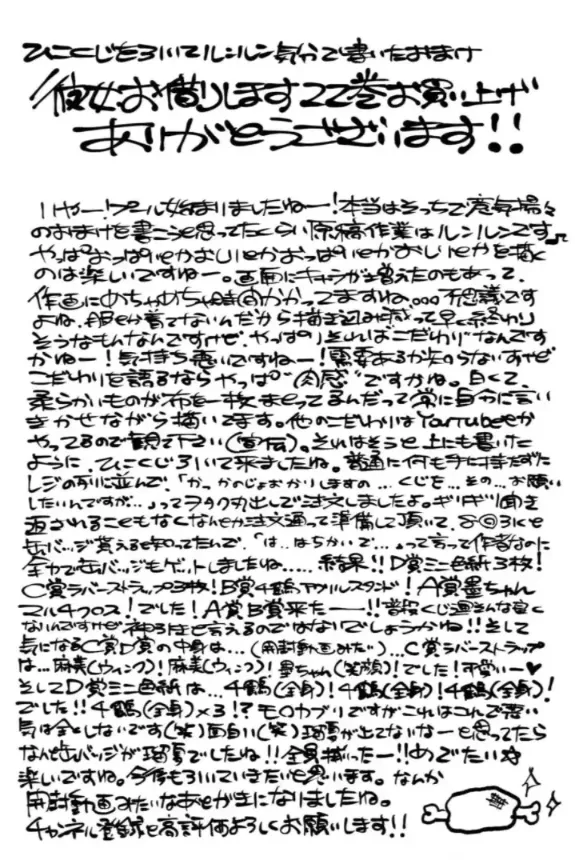 ひこくじをろいてルンルン気分で書いたおまけ
彼女お借りします22巻お買い上げ
ありがとうございます!!
いやー!プール始まりましたねー!本当はそっちで意気揚々
のおまけを書こうと思ってたくらい原稿作業はルンルンです♪
やっぱおっぱいとかおしいとかおっぱいとかおしいとかを描く
のは楽しいですねー。画面にキャラが増えたのもあって、
作画にめちゃめちゃ時間かかってますね。。。不思議です
よね、服とか着てないんだから描き込み減って早く終わり
そうなもんなんですけど、やっぱりそればこだわりなんです
かねー!気持ち悪いですねー!需要あるか知らないすけど
こだわりを語るならやっぱ"肉感"ですかね。白くて、
柔らかいものが布を一枚まとってるんだって常に自分に言い
きかせながら描いてます。他のこだわりはYourtubeとか
やってるので観て下さい(宣伝)。それはそうと上にも書いた
ように、ひこくじろいて来ましたね。普通に何も手に持たずに
レジの列に並んで、「かっかのじょおかりしますの...くじを...その...お願い
したいんですが...」ってヲタク丸出しで注文しましたよ。ギリギリ聞き
返されることもなくなんとか注文通って準備して頂いて、
缶バッジ貰えると知ってたんで、「は..はちかいで...」って言って作者なのに
全力で缶バッジもゲットしましたね.....結果!!D賞ミニ色紙3枚!
C賞ラバーストラップ3枚!B賞千鶴アクリルスタンド!A賞墨ちゃん
マルチクロス!でした!A賞B賞来たー!!普段くじ運そんな良く
ないんですけど神引きと言えるのではないでしょうかね!!そして
気になるC賞D賞の中身は...(開封動画みたい)...C賞ラバーストラップ
は...麻美(ウィンク)!麻美(ウィンク)!墨ちゃん(笑顔)!でした!可愛いー♥
そしてD賞ミニ色紙は...千鶴(全身)!千鶴(全身)!千鶴(全身)!
でした!!千鶴(全身)×3!?モロカブリですがこれはこれで悪い
気は全くしないです(笑)面白い(笑)瑠夏が出てないなーと思ってたら
なんと缶バッジが瑠夏でしたね!!全員揃ったー!!めでたい☆
楽しいですね。今後もろいていきたいと思います。なんか
開封動画みたいなあとがきになりましたね。
チャンネル登録と高評価よろしくお願いします!!